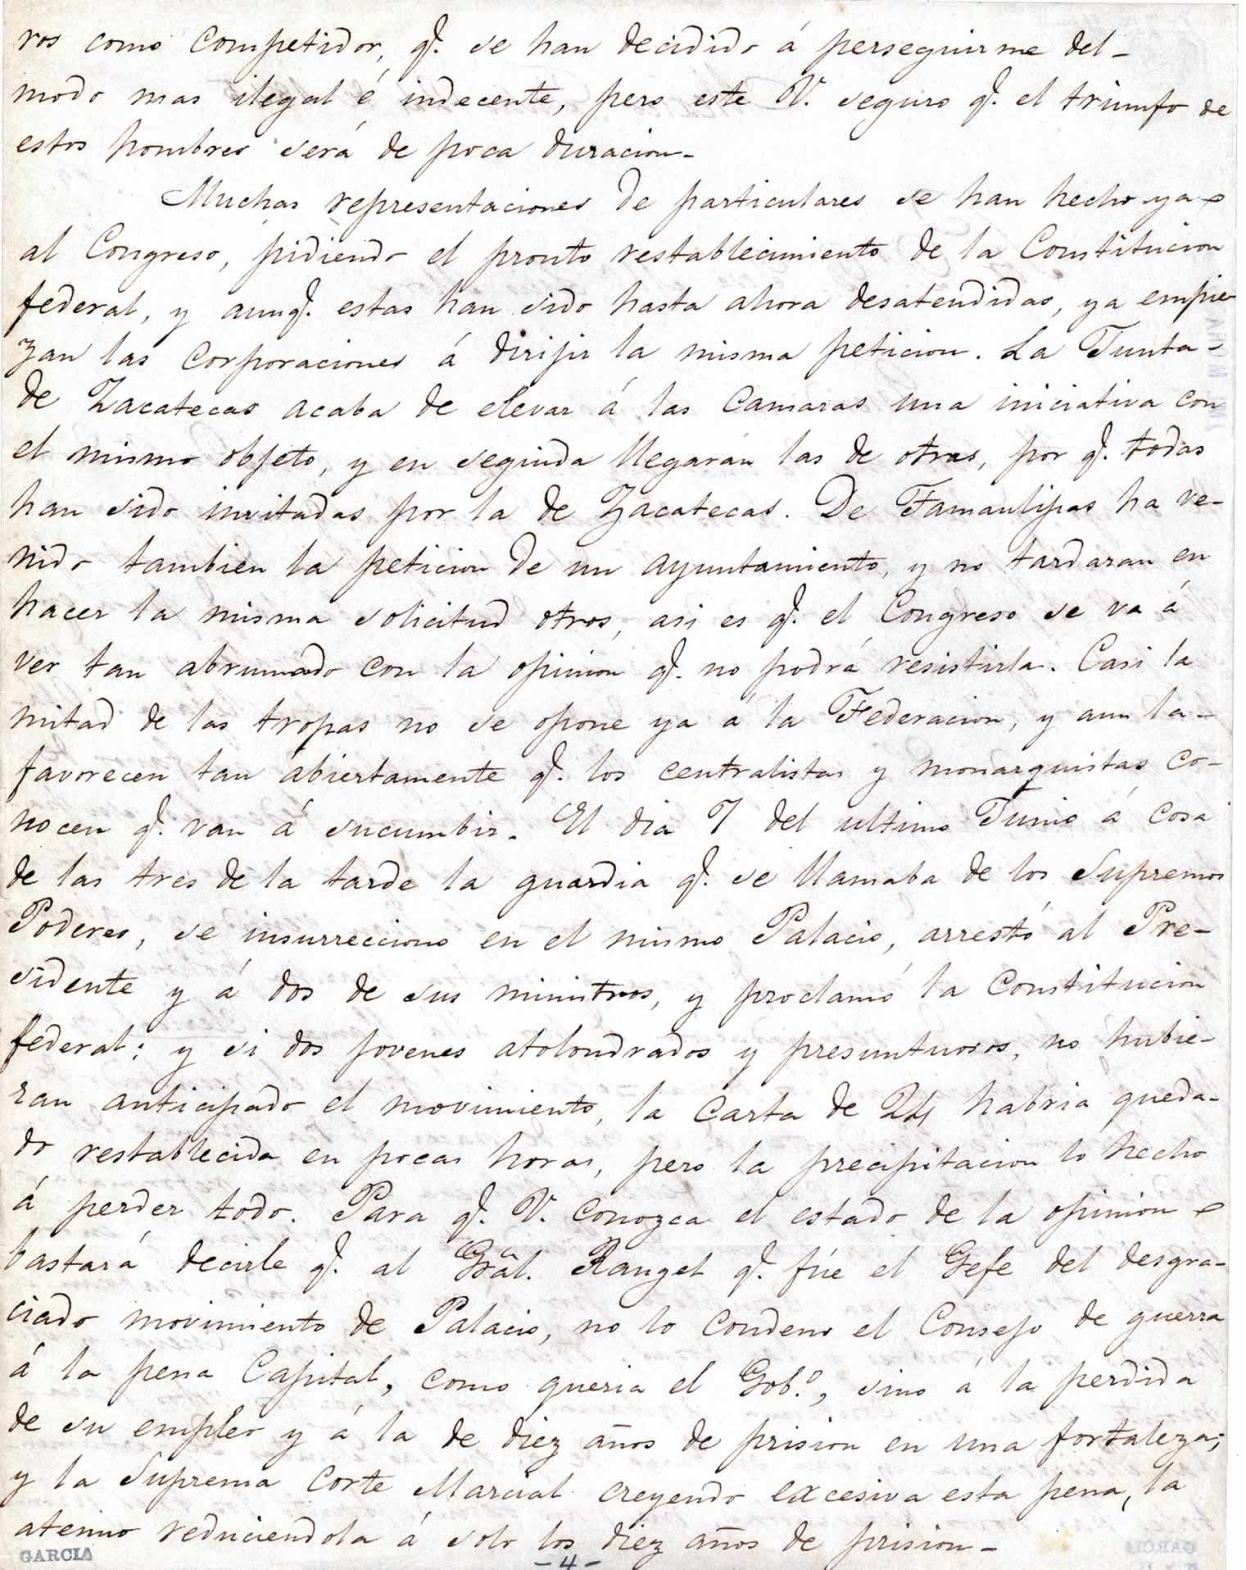 ros como competidor, q.e se han decidido á perseguirme del-
modo mas ilegal é indecente, pero este V. seguro q.e el triumfo de
estos hombres será de poca duracion-
Muchas representaciones de particulares se han hecho ya
al Congreso, pidiendo el pronto restablecimiento de la Constitucion
federal, y aunq.e estas han sido hasta ahora desatendidas, ya empie
zan las corporaciones á dirijir la misma peticion. La Junta-
de Zacatecas acaba de elevar á las Camaras una iniciativa con
el mismo objeto, y en seguida llegarán las de otras, por q.e todas
han sido invitadas por la de Zacatecas. De Tamaulipas ha ve-
nido tambien la peticion de un ayuntamiento, y no tardaran en
hacer la misma solicitud otros, asi es q.e el Congreso se va á
ver tan abrumado con la opinion q.e no podrá resistirla. Casi la
mitad de las tropas no se opone ya á la Federacion, y aun la-
favorecen tan abiertamente q.e los centralistas y monarquistas co-
nocen q.e van á sucumbir. El dia 7 del ultimo Junio á cosa
de las tres de la tarde la guardia q.e se llamaba de los Supremos
Poderes, se insurrecciono en el mismo Palacio, arrestó al Pre-
sidente y á dos de sus ministros, y proclamó la Constitucion
federal; y si dos jovenes atolondrados y presuntuosos, no hubie-
ran anticipado el movimiento, la Carta de 24 habria queda-
do restablecida en pocas horas, pero la precipitacion lo hecho
á perder todo. Para q.e V. conozca el estado de la opinion
bastará decirle q.e al Grâl. Rangel q.e fúe el Gefe del desgra-
ciado movimiento de Palacio, no lo condeno el Consejo de guerra
á la pena Capital, como queria el Gob.o, sino á la perdida
de su empleo y á la de diez años de prision en una fortaleza;
y la Suprema Corte Marcial creyendo excesiva esta pena, la
atenuo reduciendola á solo los diez años de prision-
GARCIA
-4-